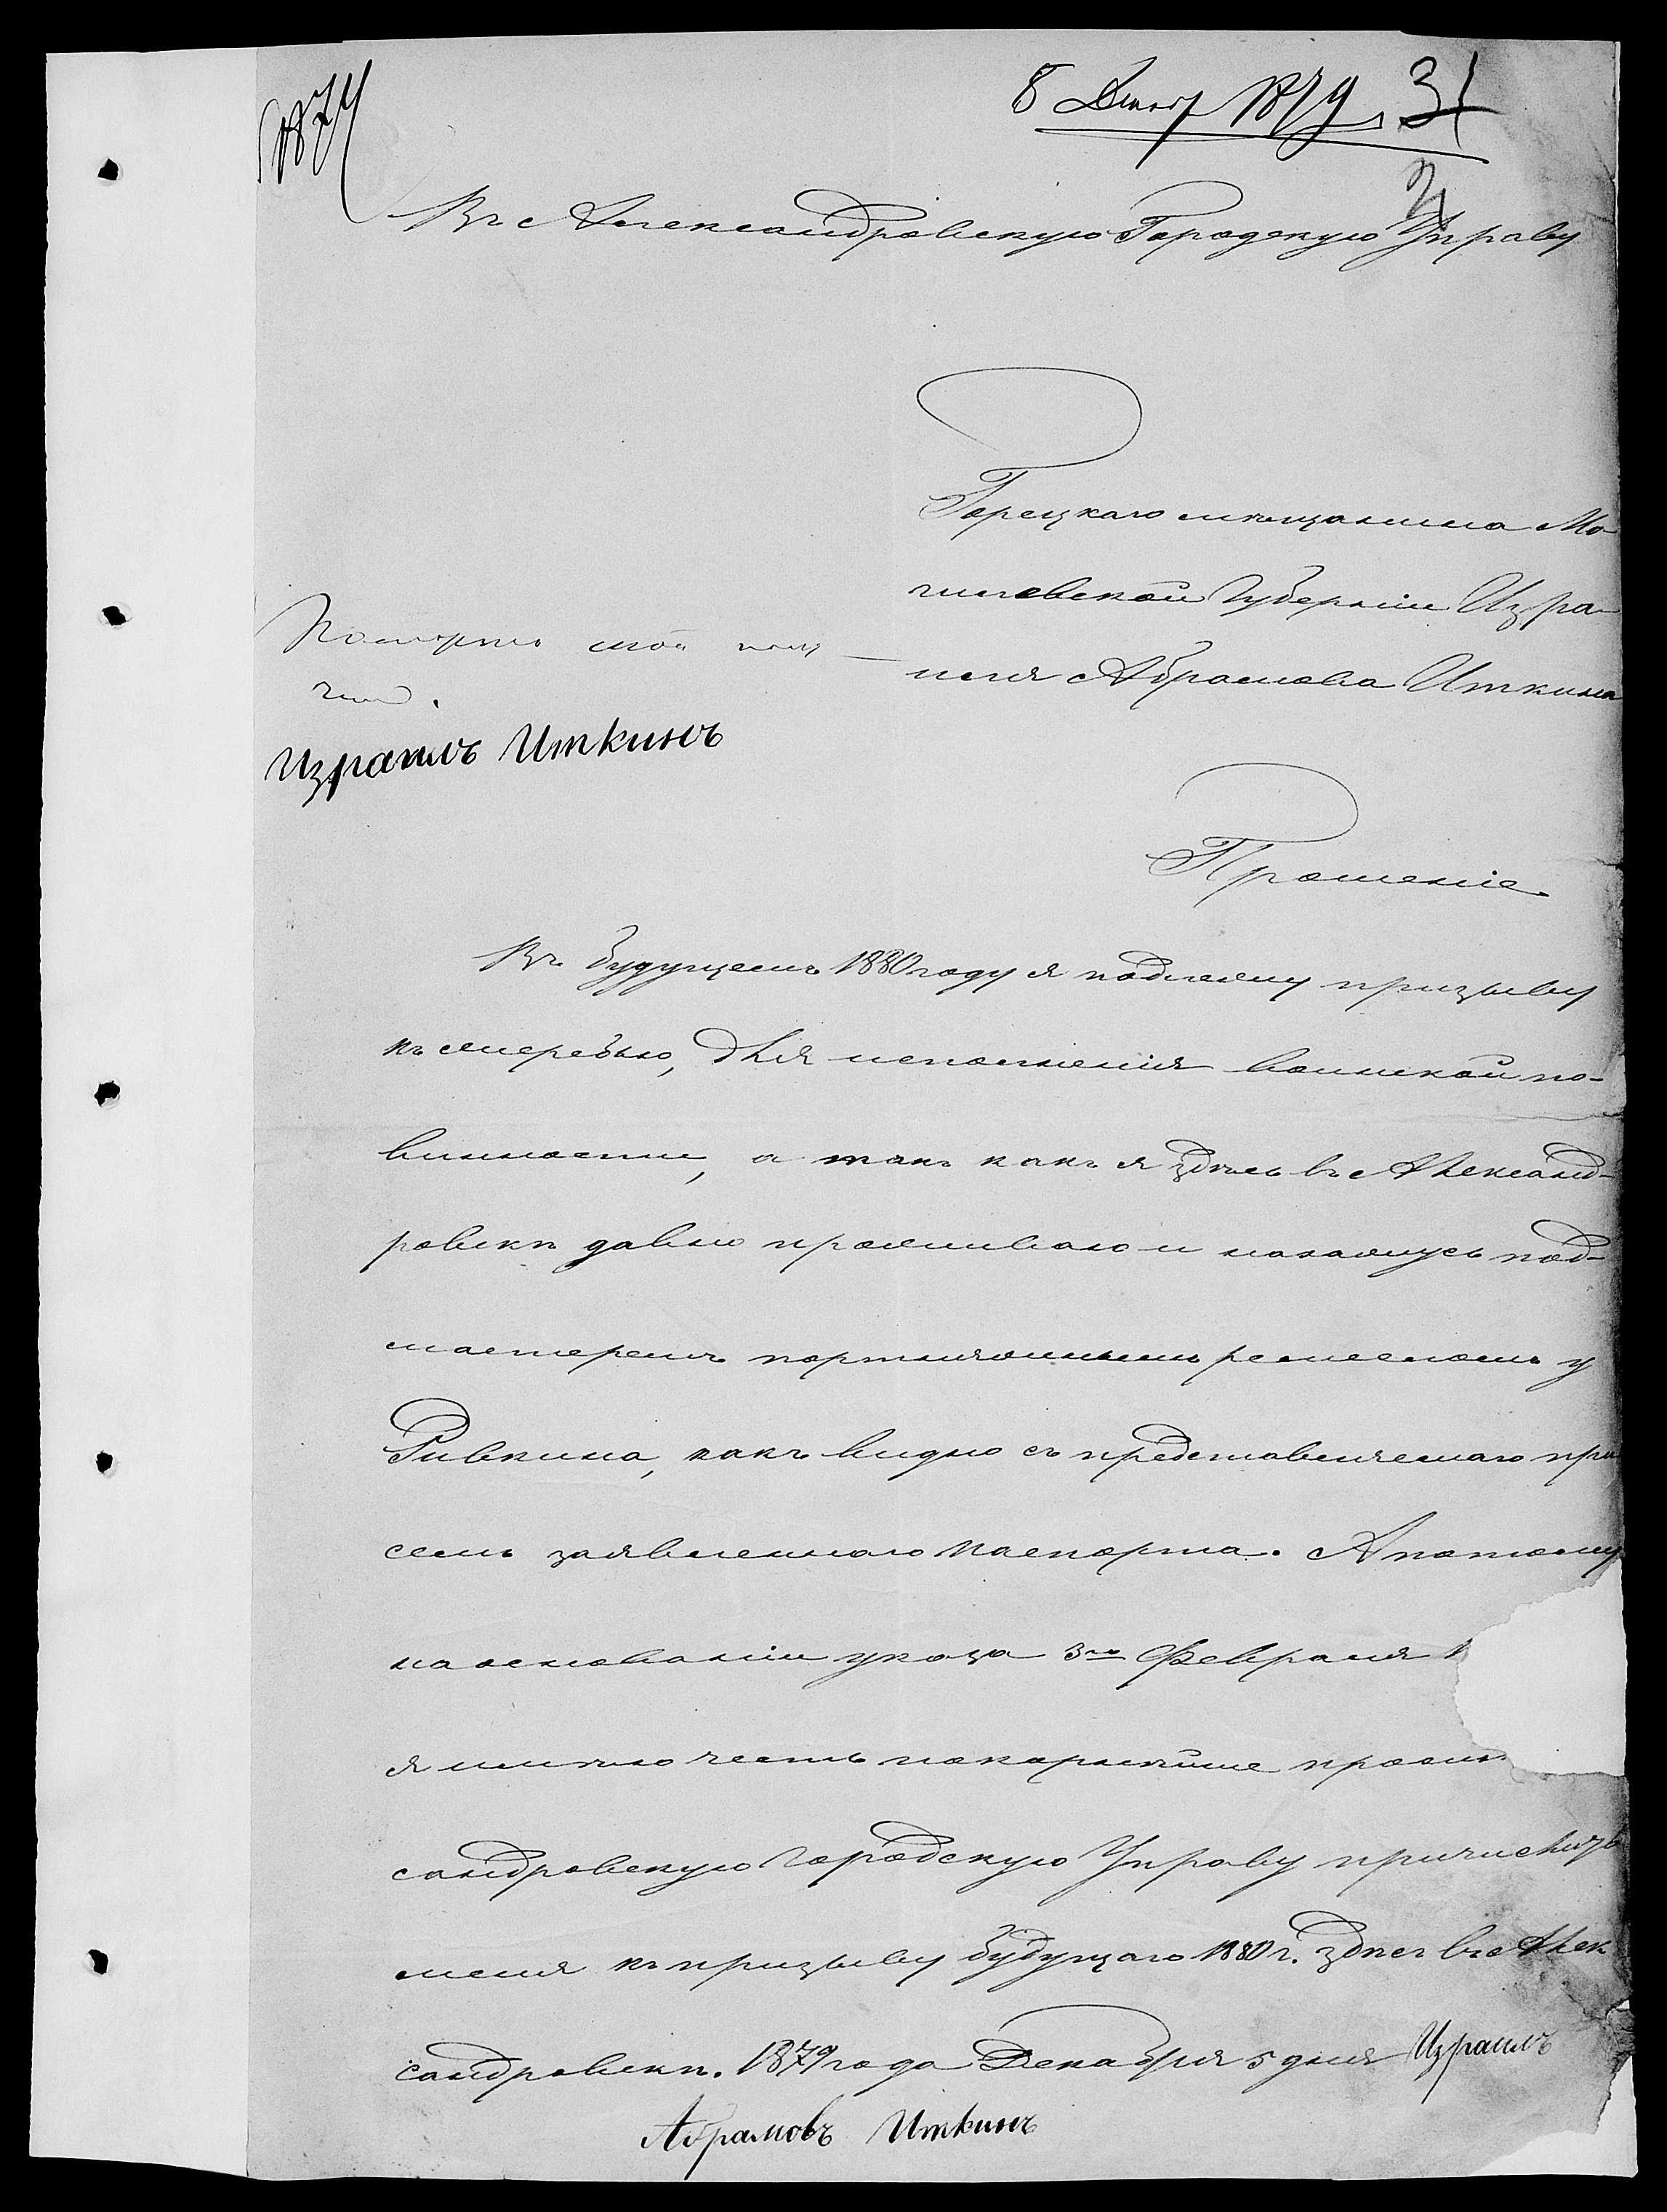 1874
8 Декабр 1879 31
2
Въ Александровскую Городскую Управу
Горецкаго мѣщанина Мо-
гилевской Губерніи Изра-
иля Абрамова Иткина
Паспортъ свой полу-
чилъ.
Израиль Иткинъ
Прошеніе
Въ будущемъ 1880 году я подлежу призыву
къ жеребью, для исполненія воинской по-
винности, а такъ какъ я здѣсь въ Александ-
ровскѣ давно проживаю и нахожусь под-
мастеремъ портняжнымъ ремесломъ у
Ривкина, какъ видно съ представляемаго при
семъ заявленнаго паспорта. А потому
на основаніи указа 3го Февраля
я имѣю честь покорнѣйше
сандровскую Городскую Управу причислить
меня къ призыву будущаго 1880 г. здѣсь въ Алек
сандровскѣ. 1879 года Декабря 5 дня Израиль
Абрамовъ Иткинъ